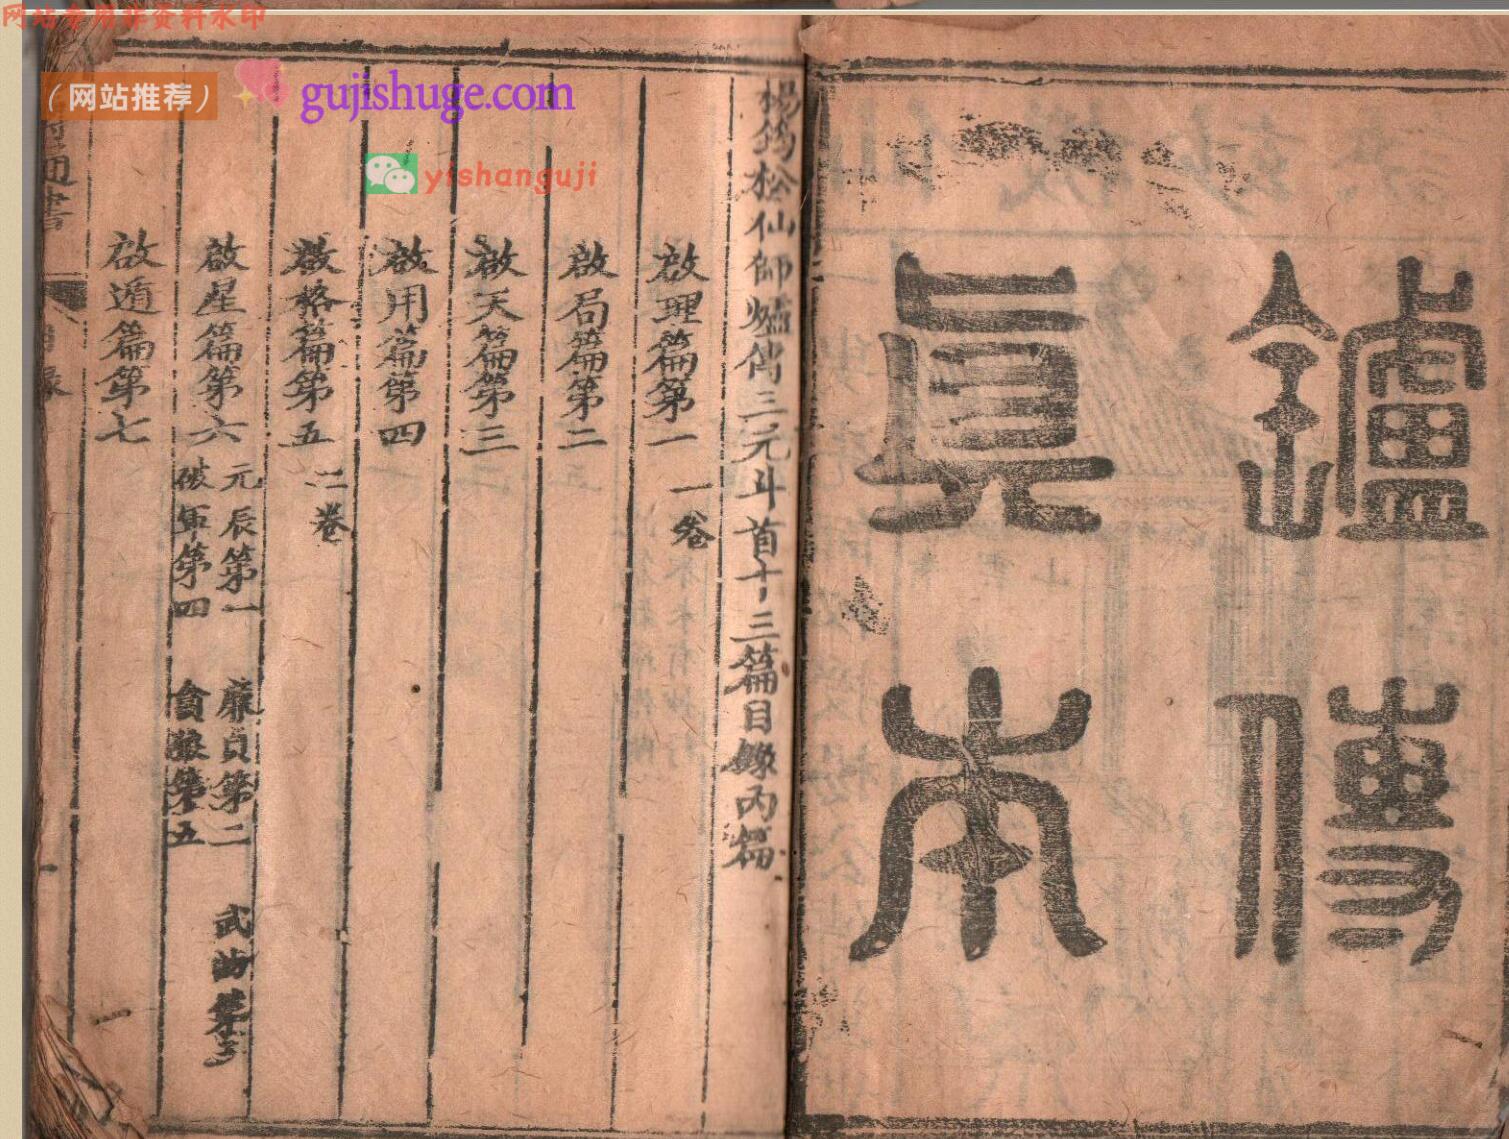 网站专用非资料水印
（网站推荐）
gujishuge.com
yishanguji
鑪傳
眞本
楊筠松仙師爐傳三元斗首十三篇目錄丙篇
啟理篇第一 一卷
啟局篇第二
啟天篇第三
啟用篇第四
啟格篇第五 二卷
啟星篇第六 元辰第一 廉貞第二 武曲第三
破軍第四 貪狼第五
啟遁篇第七
通書
目錄